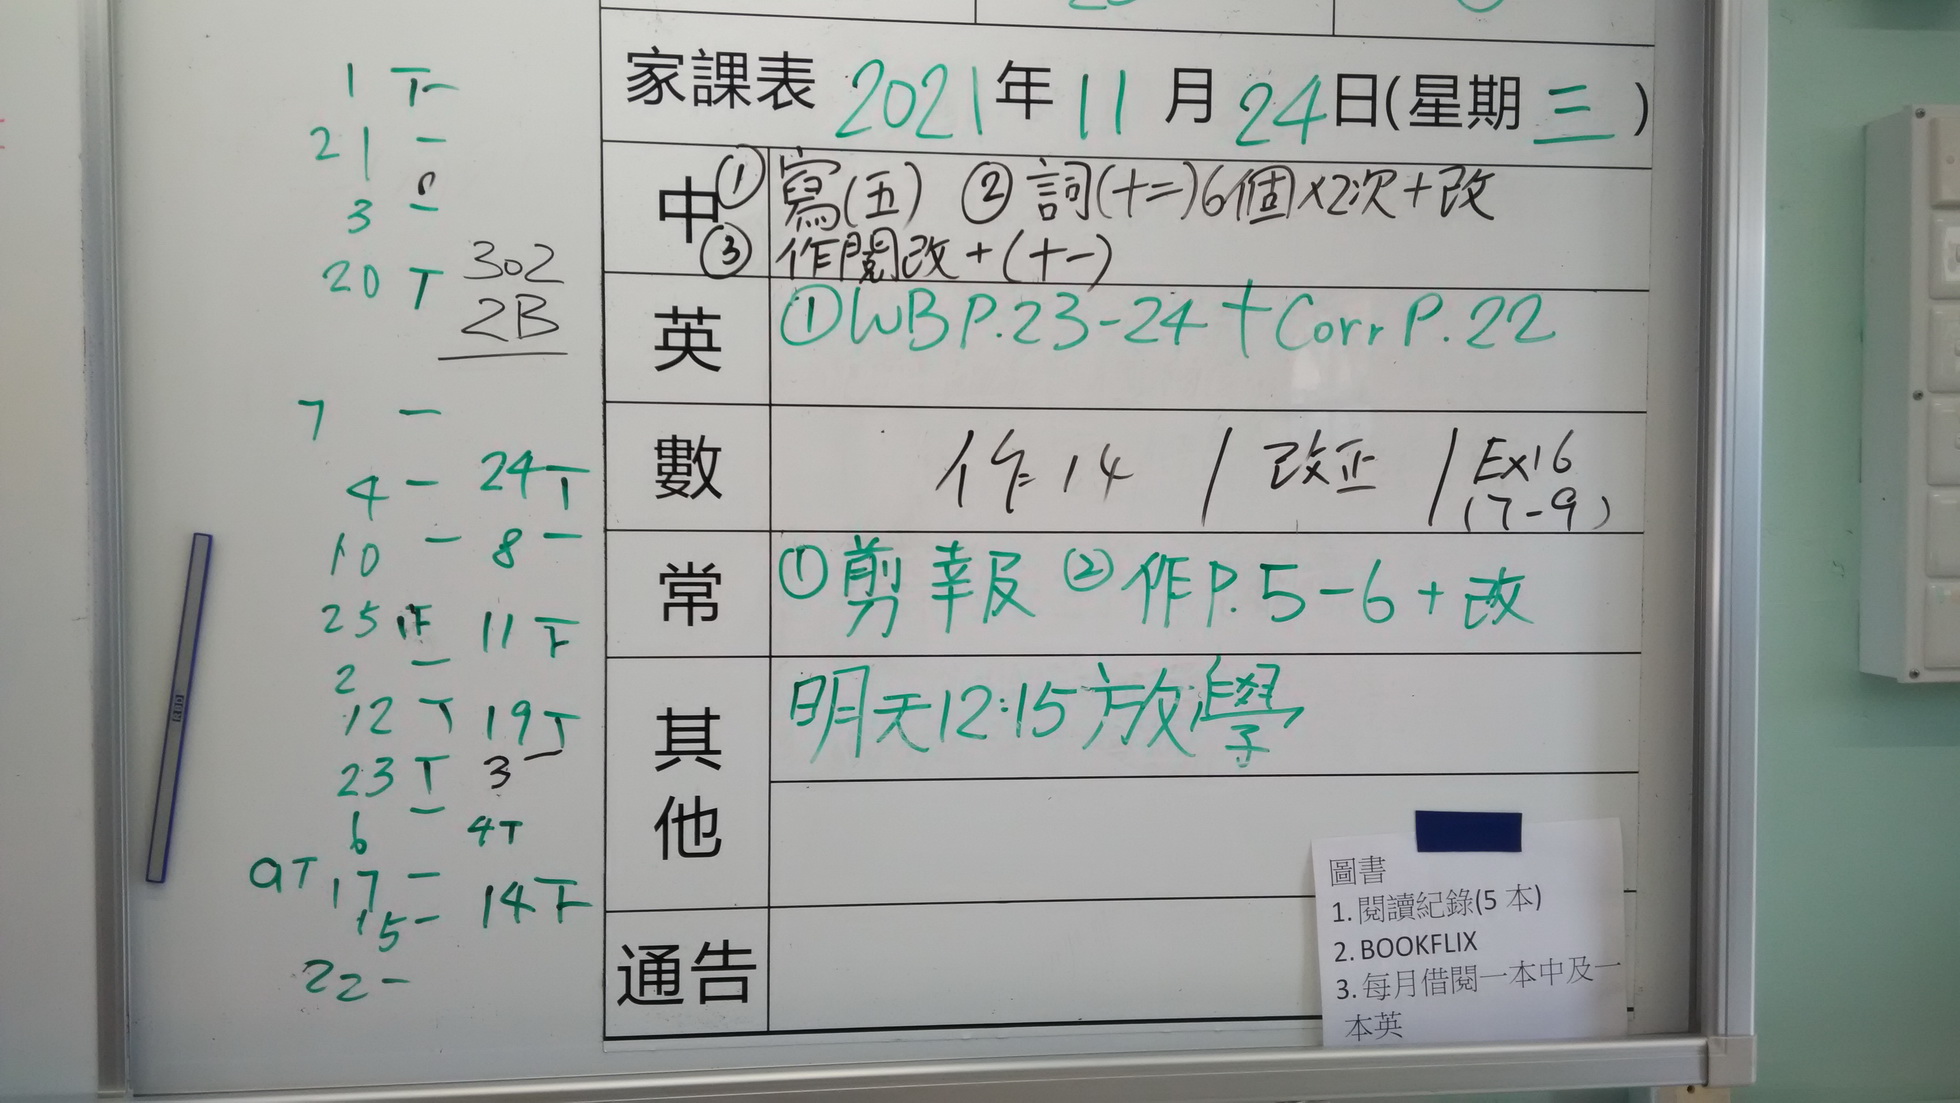 家課表 2021年 11月 24日(星期三)
中 ①寫(五) ②詞(十二)6個×2次+改
③作閱改+(十一)
英 ①WB P.23-24 + Corr P.22
數 作14 / 改正 / Ex16
(7-9)
常 ①剪報 ②作P.5-6+改
其他 明天12:15放學
通告
圖書
1. 閱讀紀錄(5 本)
2. BOOKFLIX
3. 每月借閱一本中及一
本英
1 下
21 一
3 一
20 T
302
2B
7 一
4 一 24 T
10 一 8 一
25 下 11 下
2 一
12 T 19 T
23 T 3 一
6 一 4T
9T 17 一
15 一 14 下
22 一